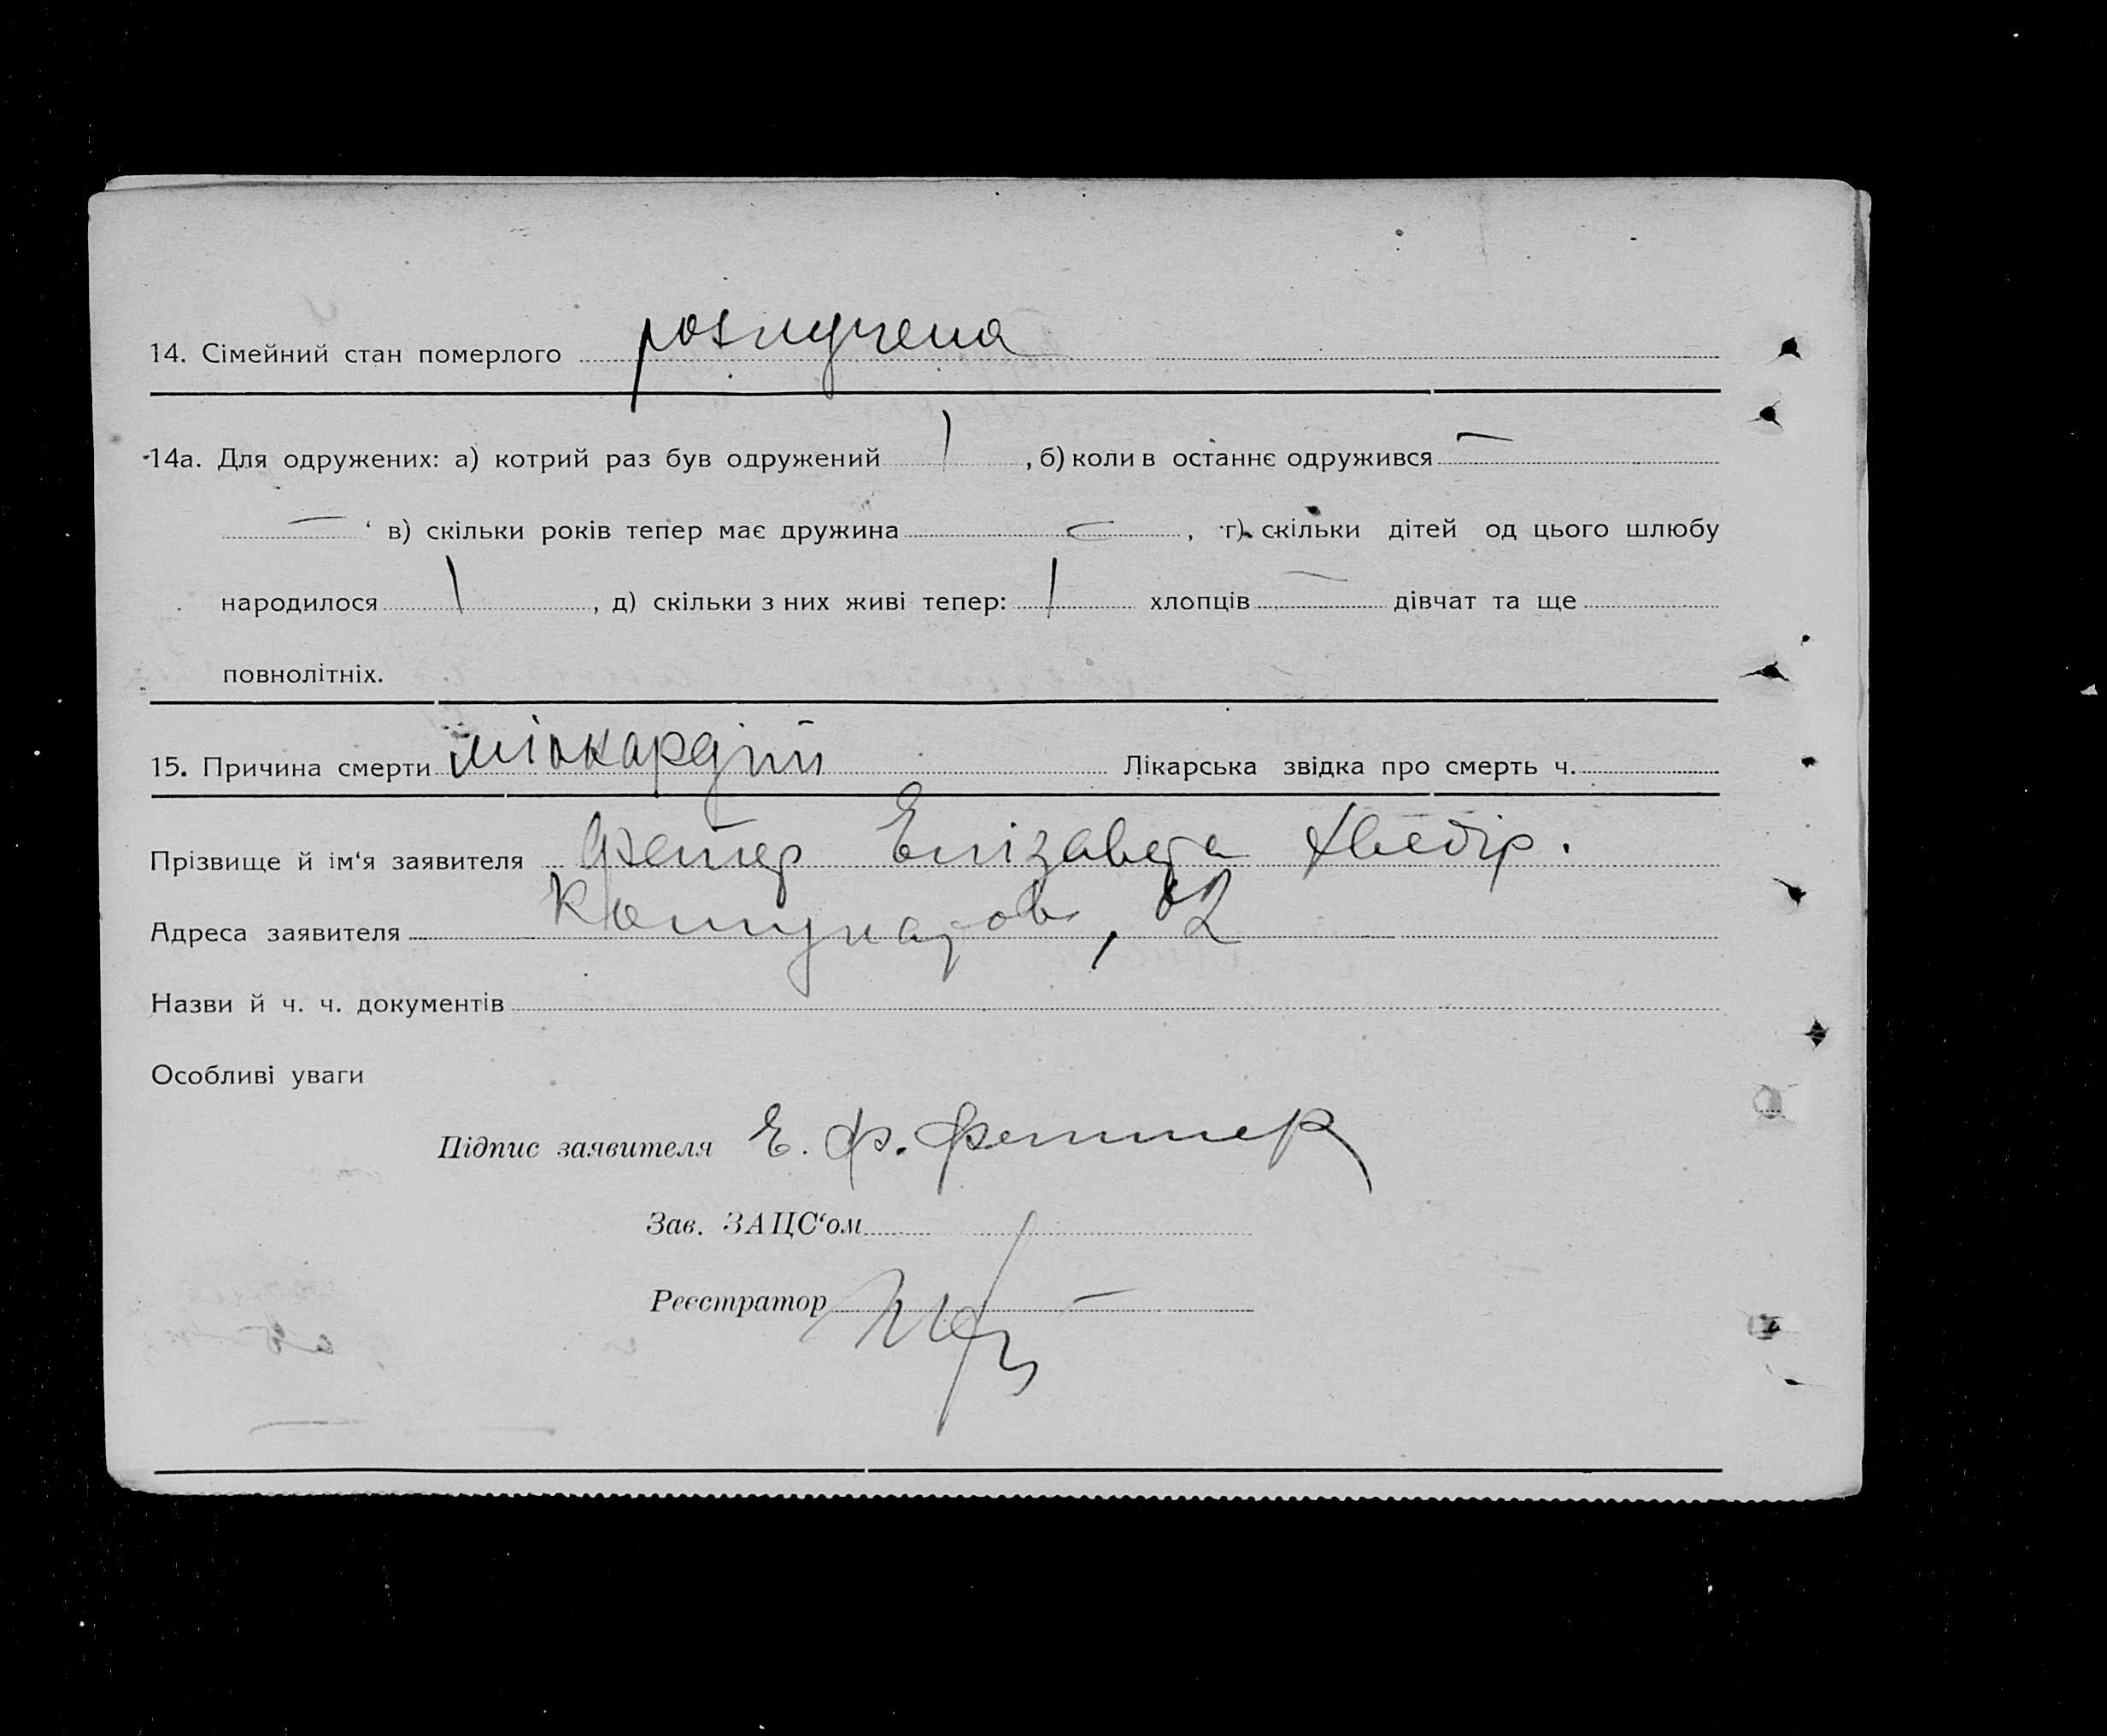 14. Сімейний стан померлого розлучена
14а. Для одружених: а) котрий раз був одружений 1 , б) коли в останнє одружився —
— ‘ в) скільки років тепер має дружина — , г) скільки дітей од цього шлюбу
народилося 1 , д) скільки з них живі тепер: 1 хлопців — дівчат та ще
повнолітніх.
15. Причина смерти міокардит Лікарська звідка про смерть ч.
Прізвище й ім‘я заявителя Фетер Елізавета Хведір.
Адреса заявителя Комунаров, 62
Назви й ч. ч. документів
Особливі уваги
Підпис заявителя Е. Ф. Феттер
Зав. ЗАЦС‘ом
Реєстратор